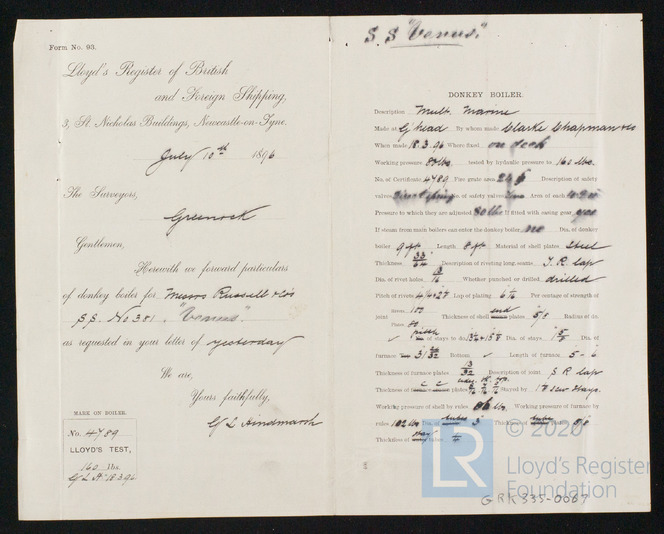 Form No. 93.
Lloyd's Register of British
and Foreign Shipping,
3, St. Nicholas Buildings, Newcastle-on-Tyne.
July 10th 1896
The Surveyors,
Greenock
Gentlemen,
Herewith we forward particulars
of donkey boiler for Messrs Russell & Co's
S.S. No 381. "Venus"
as requested in your letter of yesterday
We are,
Yours faithfully,
G L Hindmarsh
MARK ON BOILER.
No. 4489
LLOYD'S TEST,
160 lbs.
G L H 18.3.96
S.S "Venus."
DONKEY BOILER.
Description Mult. Marine
Made at G'head By whom made Clarke Chapman & Co
When made 18.3.96 Where fixed on deck
Working pressure 80 lbs tested by hydraulic pressure to 160 lbs.
No. of Certificate 4489 Fire grate area Description of safety
valves of safety valves Area of each
Pressure to which they are adjusted 80 lbs If fitted with easing gear yes
If steam from main boilers can enter the donkey boiler no Dia. of donkey
boiler 9 ft Length 8 ft Material of shell plates Steel
Thickness 33/64 Description of riveting long. seams T. R. Lap
Dia. of rivet holes 13/16 Whether punched or drilled drilled
Pitch of rivets Lap of plating 6 1/2 Per centage of strength of
joint Thickness of shell end plates 5/8 Radius of do.
pitch of stays to do. Dia. of stays
furnace Bottom Length of furnace 5 - 6
Thickness of furnace plates 13/32 Description of joint S R Lap
Thickness of plates Stayed by screw stays.
Working pressure of shell by rules 86 lbs Working pressure of furnace by
rules 102 lbs Dia. of tubes 3" Thickness of tube plates 5/8
Thickness of stay tubes 1/4
© 2020
LR
Lloyd's Register
Foundation
GRK335-0067